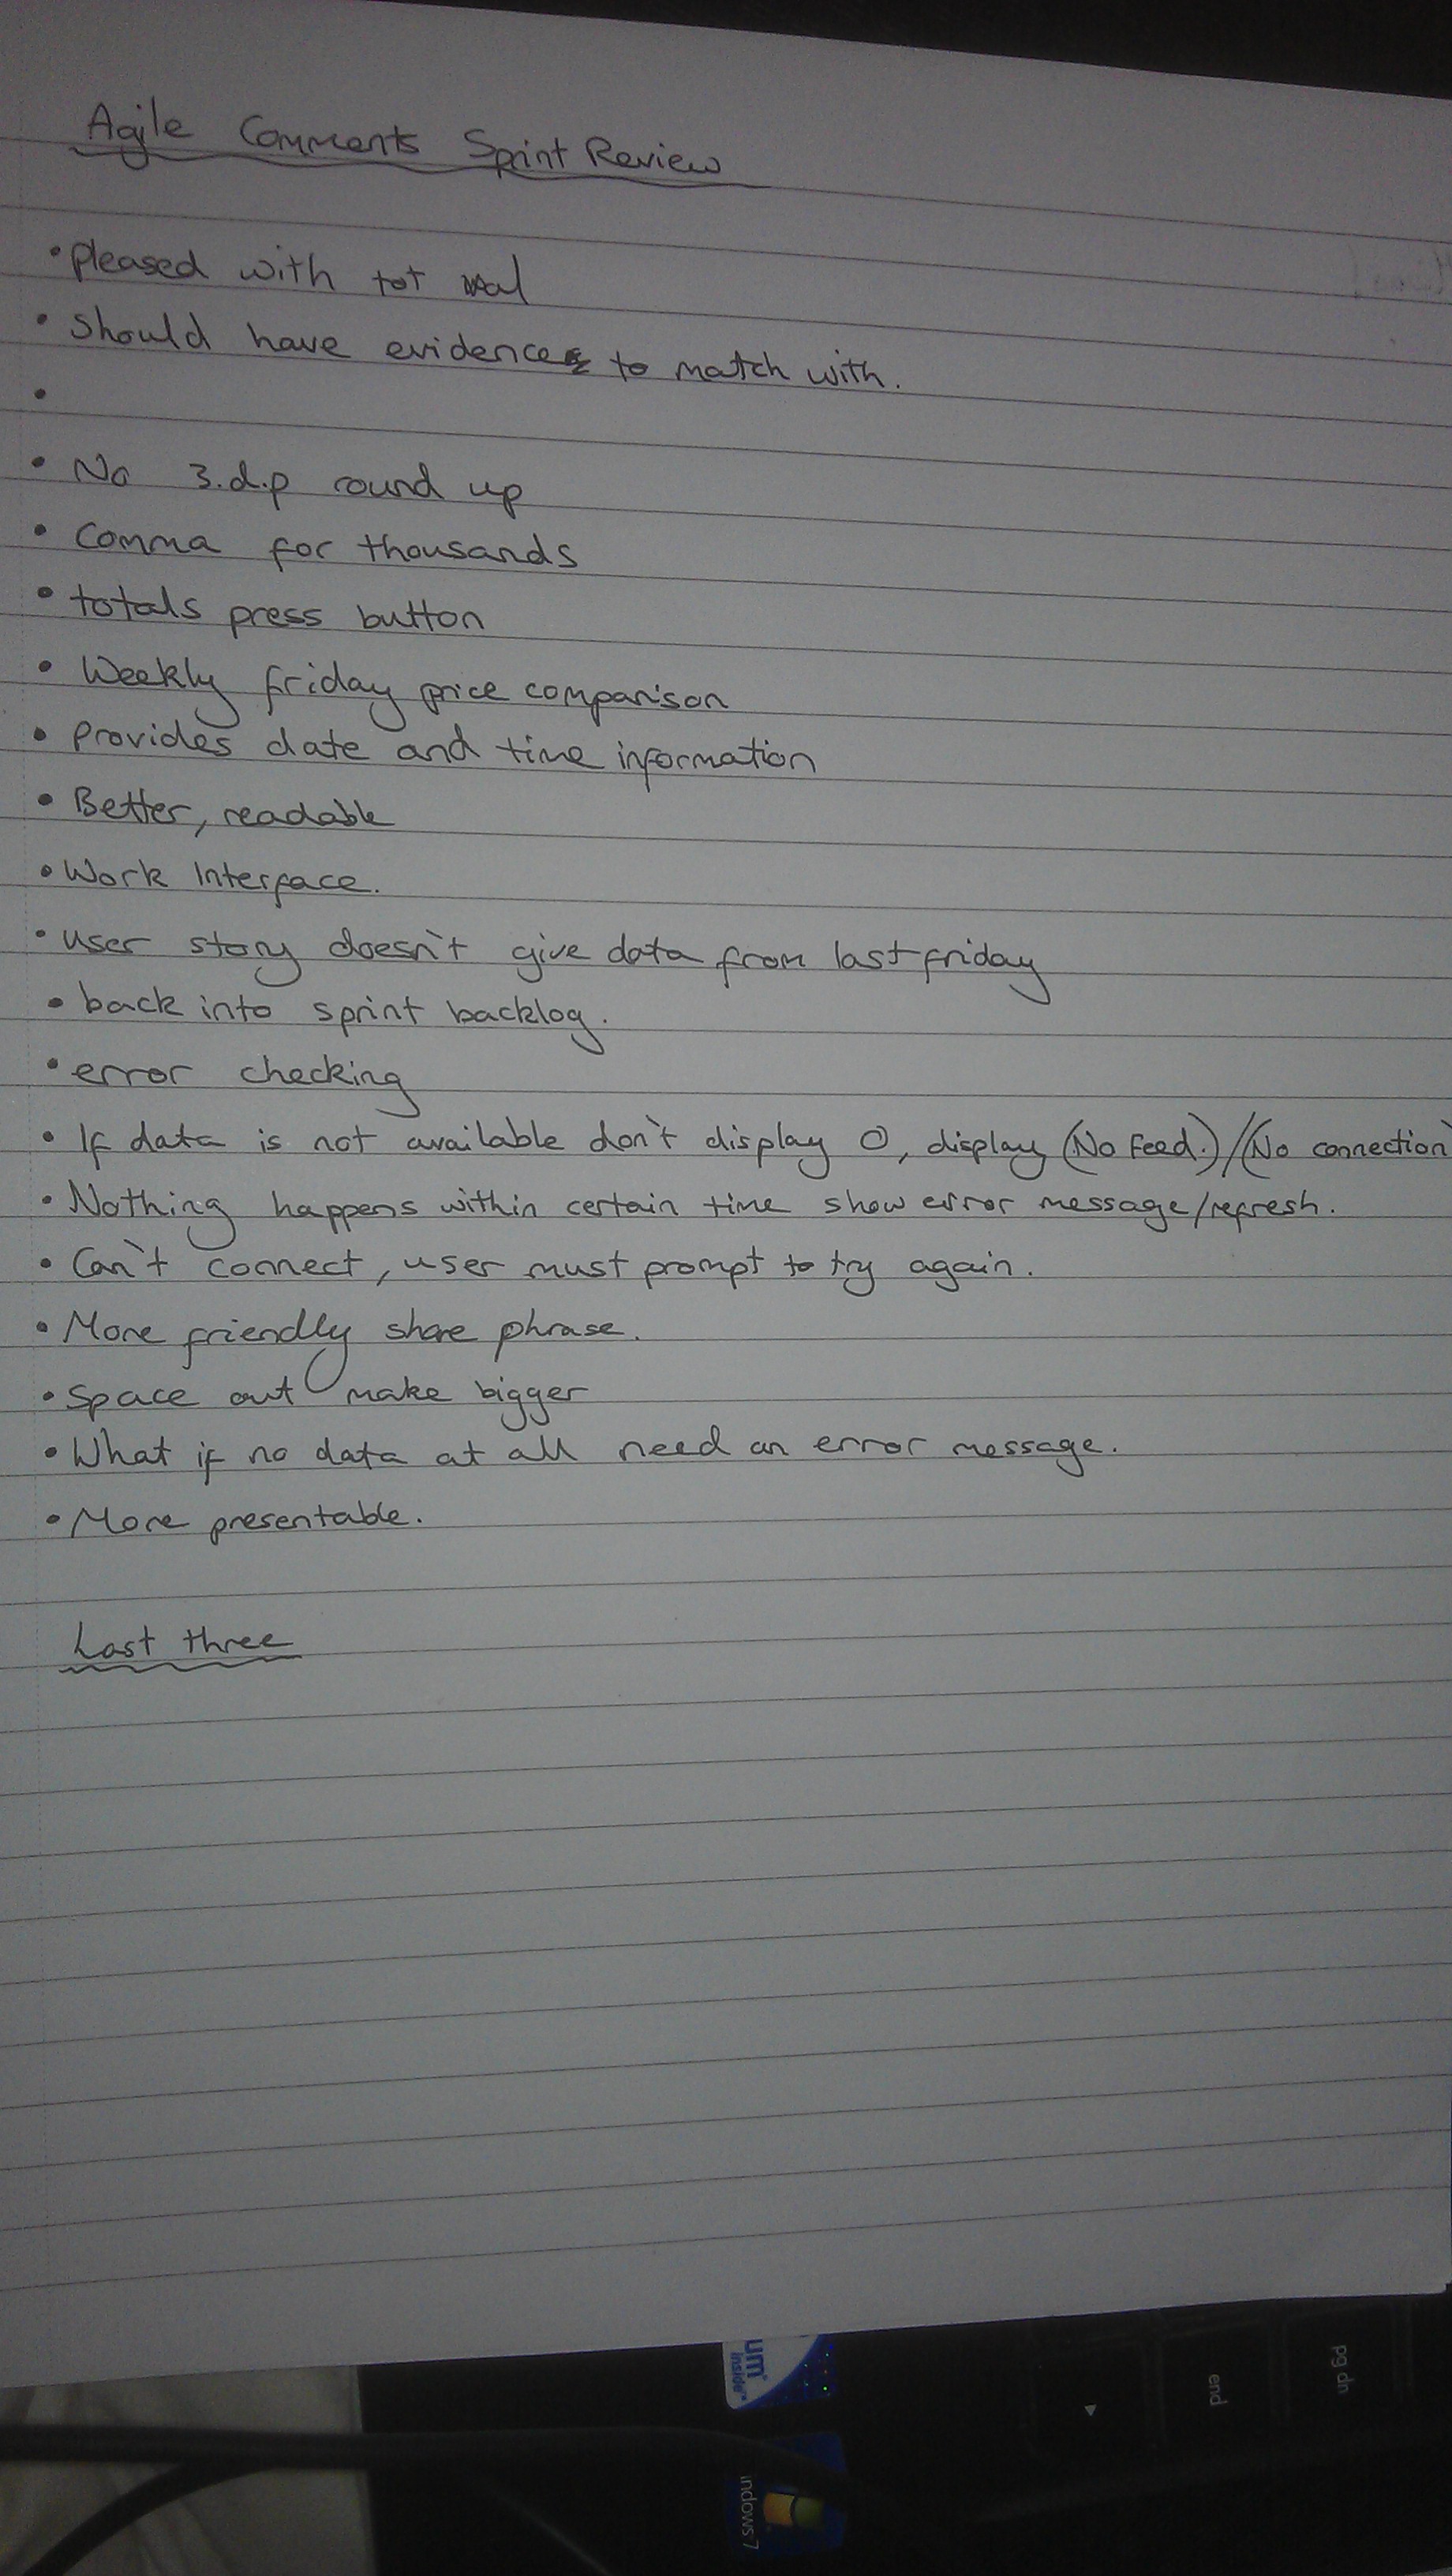 Agile Comments Sprint Review
• Pleased with tot val
• Should have evidence to match with.
•
• No 3.d.p round up
• Comma for thousands
• totals press button
• Weekly friday price comparison
• Provides date and time information
• Better, readable
• Work Interface.
• user story doesn't give data from last friday
• back into sprint backlog.
• error checking
• If data is not available don't display 0, display (No Feed.)/(No connection)
• Nothing happens within certain time show error message/refresh.
• Can't connect, user must prompt to try again.
• More friendly share phrase.
• Space out make bigger
• What if no data at all need an error message.
• More presentable.
Last three
um
inside™
indows 7
end
pg dn